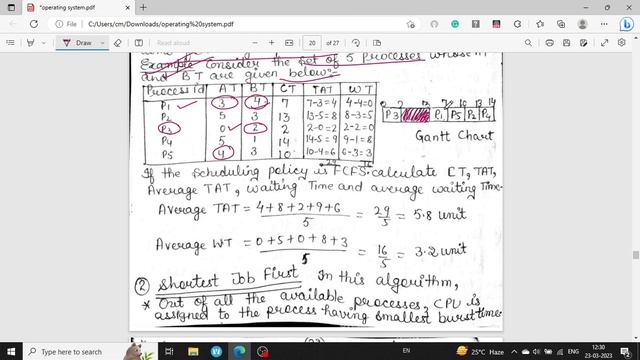 *operating system.pdf
File C:/Users/cm/Downloads/operating%20system.pdf
Draw Read aloud 20 of 27
Example Consider the set of 5 processes whose
and BT are given below:-
Process Id AT BT CT TAT WT
P1 3 4 7 7-3=4 4-4=0
P2 5 3 13 13-5=8 8-3=5
P3 0 2 2 2-0=2 2-2=0
P4 5 1 14 14-5=9 9-1=8
P5 4 3 10 10-4=6 6-3=3
29 16
0 2 3 7 10 13 14
P3 P1 P5 P2 P4
Gantt Chart
If the scheduling policy is FCFS. calculate CT, TAT,
Average TAT, Waiting Time and average waiting Time.
Average TAT = 4+8+2+9+6 / 5 = 29/5 = 5.8 unit
Average WT = 0+5+0+8+3 / 5 = 16/5 = 3.2 unit
② Shortest Job First In this algorithm,
* Out of all the available processes, CPU is
assigned to the process having smallest burst time.
25°C Haze ENG 12:30 23-03-2023